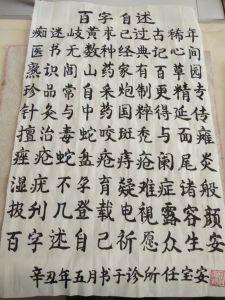 百字自述
痴迷岐黄术已过古稀年
医书有数种经典心间
熟识闾山药家有百草园
珍品常自采炮制更精专
针灸与中药国粹得延传
擅治毒蛇咬斑秃与
痤疮蛇盘疮痔疮阑尾炎
湿疣不孕育疑难症诸般
报刊几登载电视露容颜
百字述自己祈愿众生安
辛丑年五月书于诊所任宝安